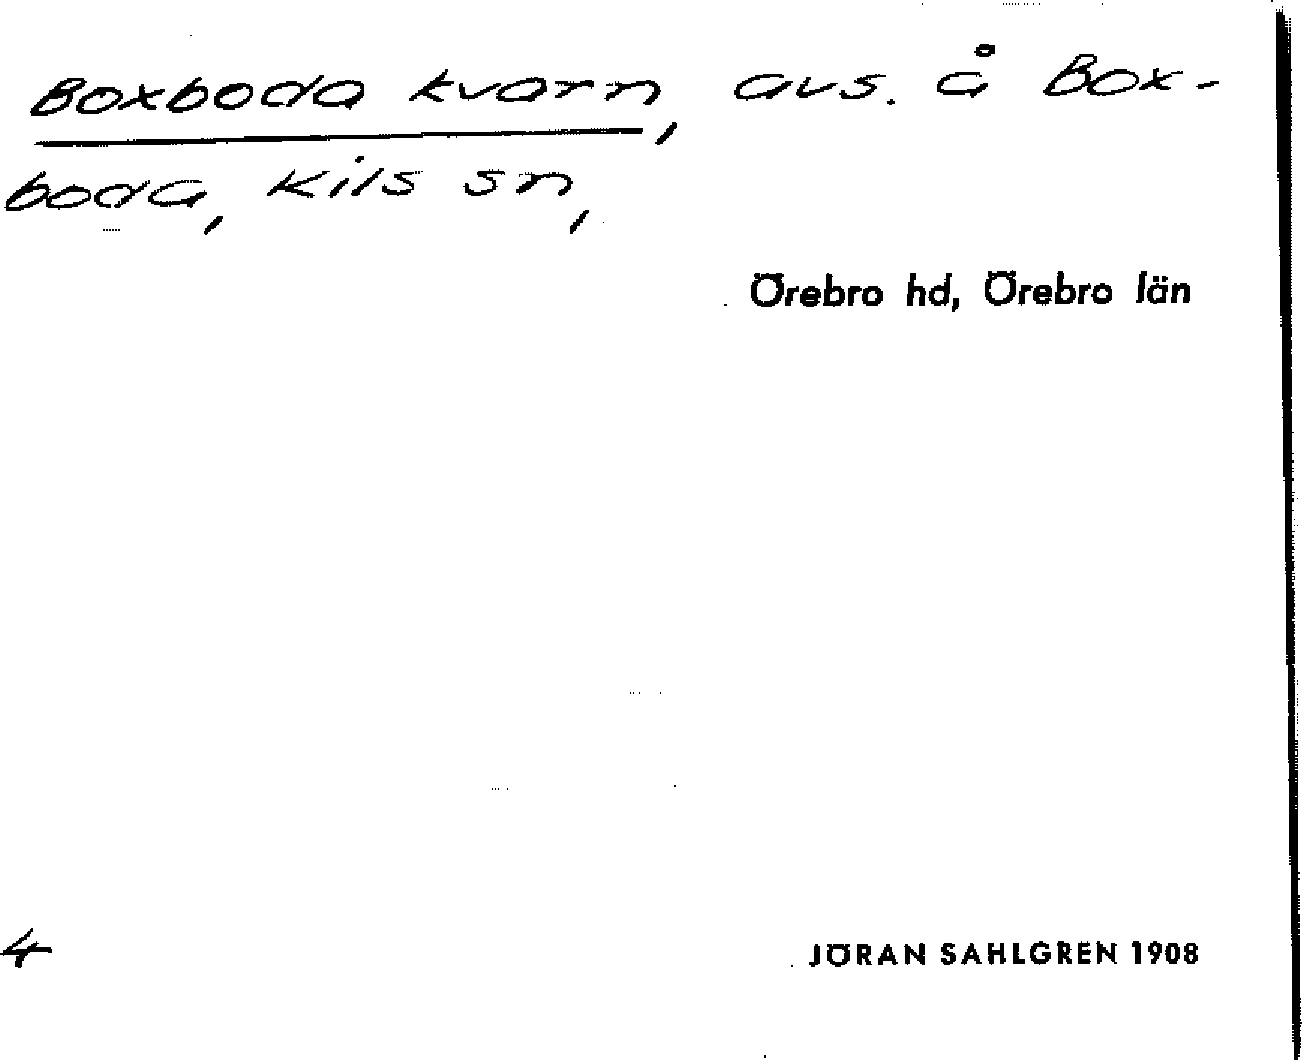 Boxboda kvarn, avs. å Box-
boda, Kils sn,
Örebro hd, Örebro län
4
JÖRAN SAHLGREN 1908